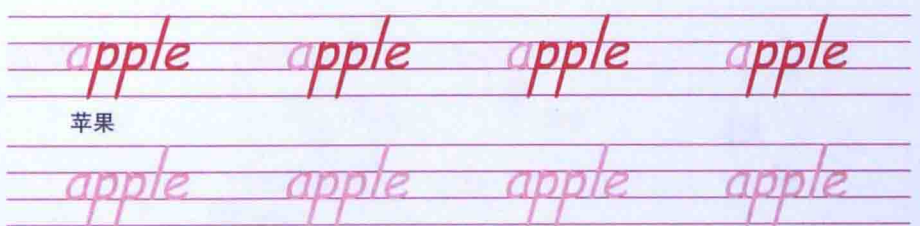 apple apple apple apple
苹果
apple apple apple apple